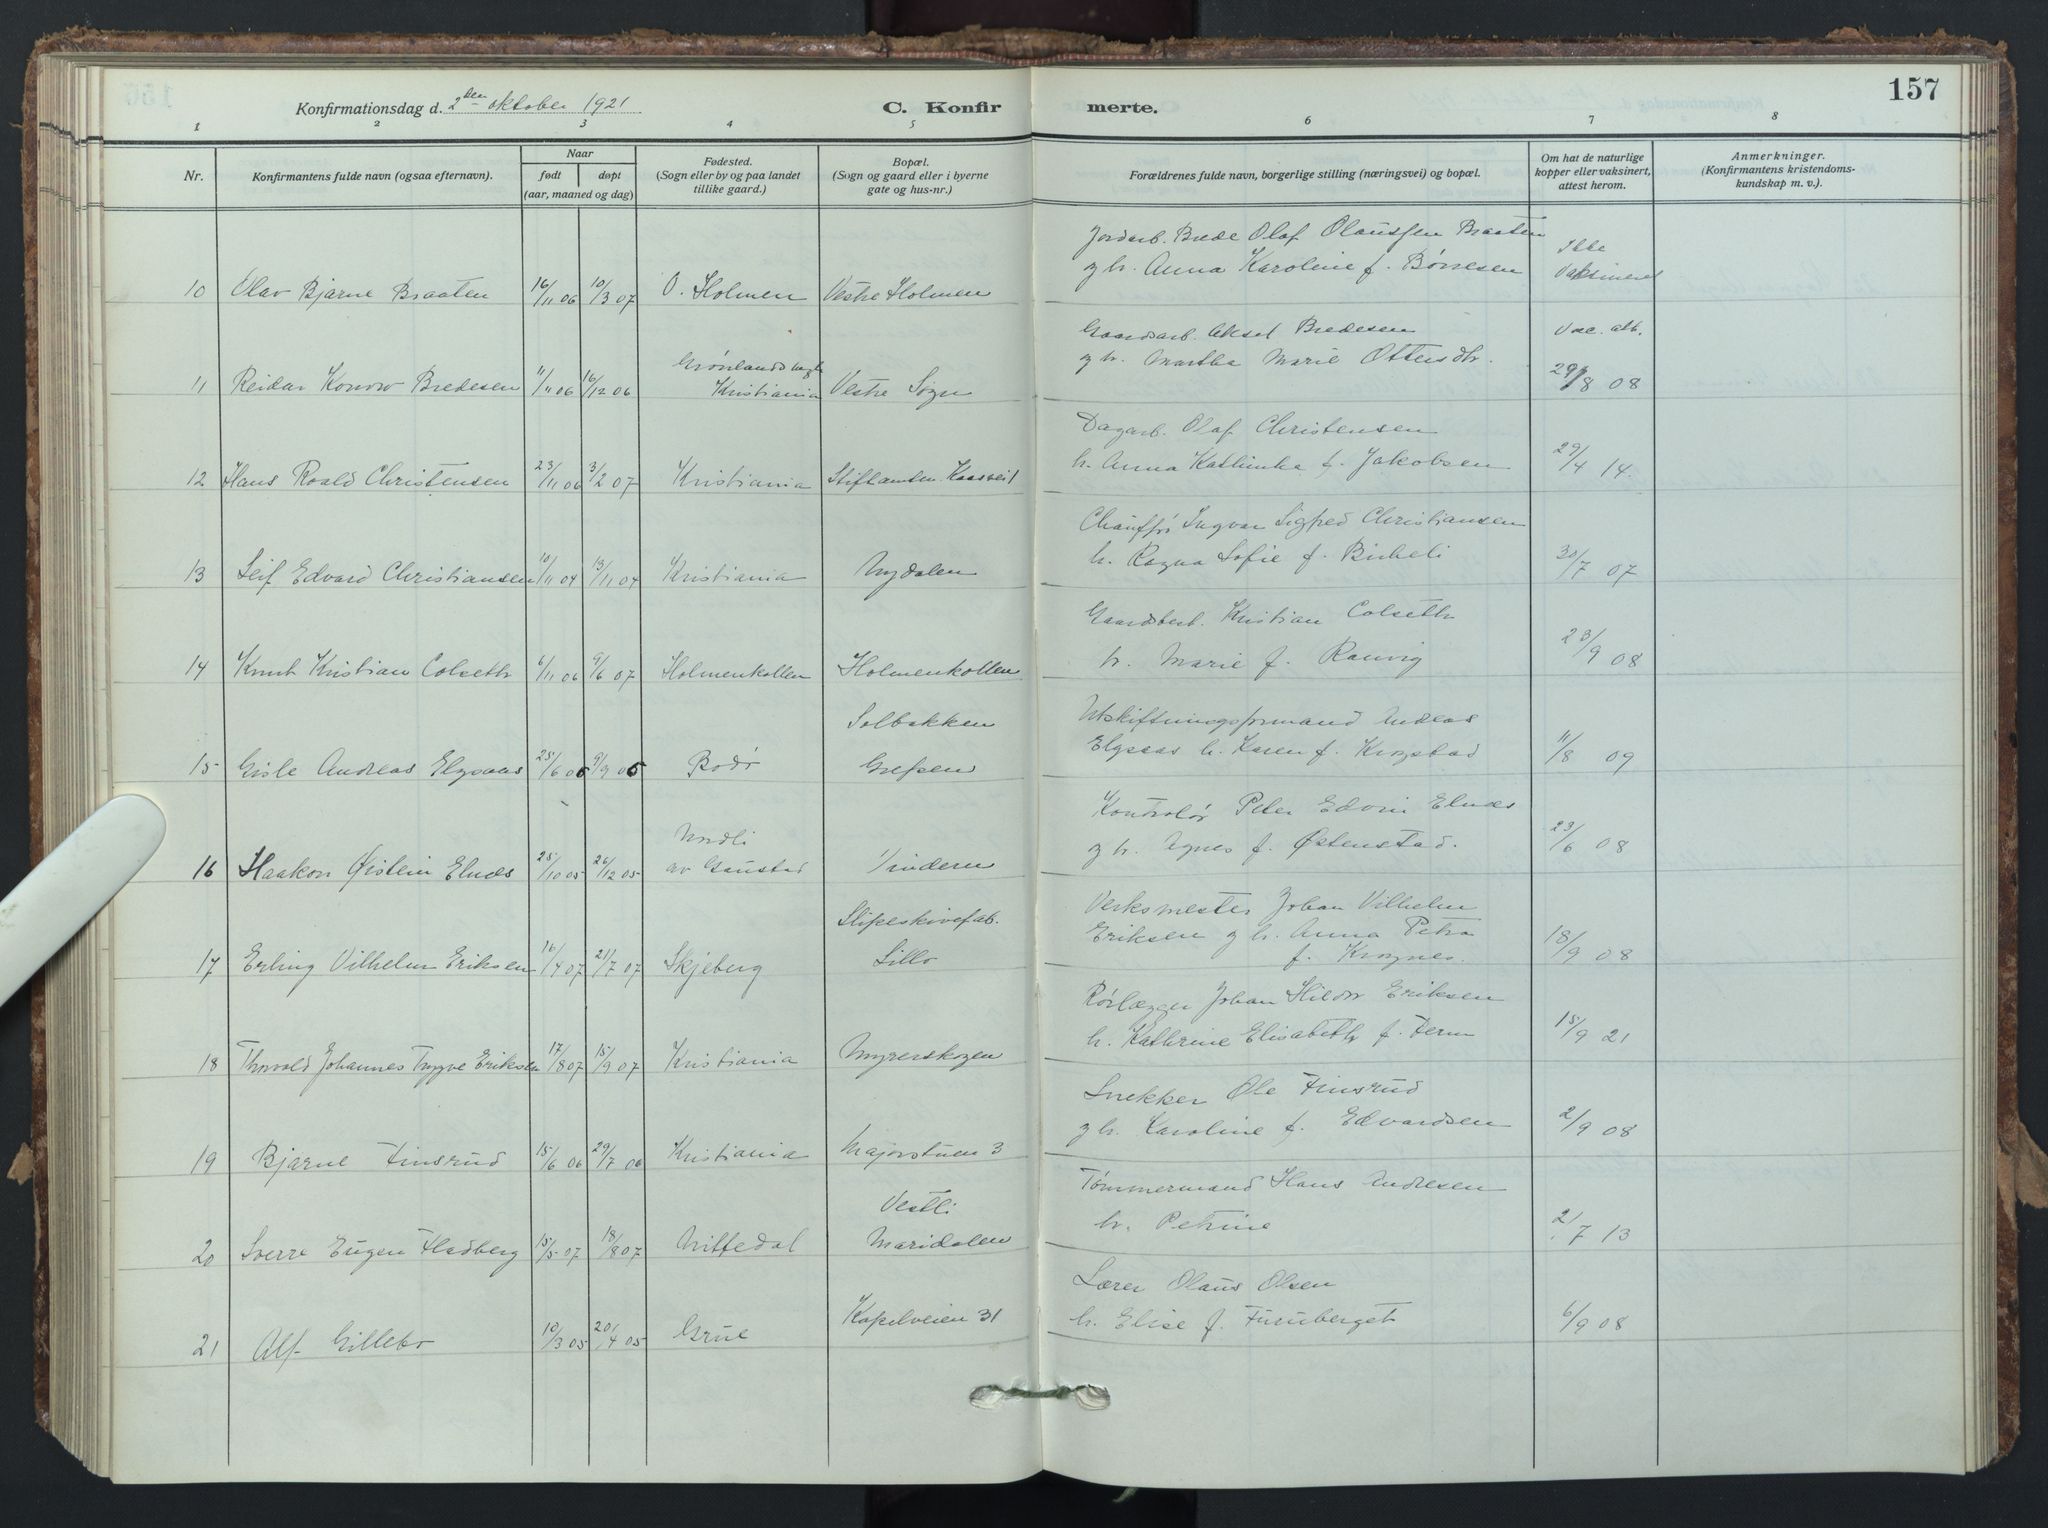 157
Konfirmationsdag d. 2den oktober 1921
C. Konfirmerte.
1 2 3 4 5 6 7 8
Nr.
Konfirmantens fulde navn (ogsaa efternavn).
Naar
født døpt
(aar, maaned og dag)
Fødested.
(Sogn eller by og paa landet
tillike gaard.)
Bopæl.
(Sogn og gaard eller i byerne
gate og hus-nr.)
Forældrenes fulde navn, borgerlige stilling (næringsvei) og bopæl.
Om hat de naturlige
kopper eller vaksinert,
attest herom.
Anmerkninger.
(Konfirmantens kristendoms-
kundskap m. v.).
Jordarb. Brede Olaf Olaussen Braaten
Ikke
og h. Anna Karoline f. Børresen
Vaksineret
10 Olav Bjarne Braaten 16/11 06 10/3 07 O. Holmen Vestre Holmen
Gaardsarb. Aksel Bredesen
Vac. att.
og h. Martha Marie Ottersdtr.
Grønlands
29/8 08
11 Reidar Konow Bredesen 11/11 06 16/12 06 Kristiania Vestre Sogn
Dagarb. Olaf Christensen
h. Anna Kathinka f. Jakobsen 29/4 14.
12 Hans Roald Christensen 23/11 06 3/2 07 Kristiania
Chauffør Ingvar Sigfred Christiansen
h. Ragna Sofie f. 30/7 07
13 Leif Edvard Christiansen 10/11 04 13/11 04 Kristiania Nydalen
Gaardsbest. Kristian Colseth
h. Marie f. Ranvig 23/9 08
14 Knut Kristian Colseth 6/11 06 9/6 07 Holmenkollen Holmenkollen
Solbakken
Utskiftningsformand Andreas
Elgsaas h. Karen f. Krogstad 11/8 09
15 Gisle Andreas Elgsaas 25/6 06 9/9 06 Bodø Grefsen
Kontrolør Peter Edvin Elnæs
Nordli
og h. Agnes f. Østenstad. 23/6 08
16 Haakon Øistein Elnæs 25/10 05 26/12 05 av Gaustad Vinderen
Verksmester Johan Vilhelm
Slipeskivefab.
Eriksen og h. Anna Petra
f. Krognes. 18/9 08
17 Erling Vilhelm Eriksen 16/4 07 21/7 07 Skjeberg Lillo
Rørlægger Johan Hildor Eriksen
h. Kathrine Elisabeth f. 15/9 21
18 Thorvald Johannes Trygve Eriksen 17/8 07 15/9 07 Kristiania Myrerskogen
Snekker Ole Finsrud
og h. Karoline f. Edvardsen 2/9 08
19 Bjarne Finsrud 15/6 06 29/7 06 Kristiania Majorstuen 3
Tømmermand Hans Andresen
Vestli
h. Petrine 21/7 13
20 Sverre Eugen Fladberg 15/5 07 18/8 07 Nittedal Maridalen
Lærer Olaus Olsen
Kapelveien 31
h. Elise f. Furuberget 6/9 08
21 Alf Gillebo 10/3 05 20/4 05 Grue